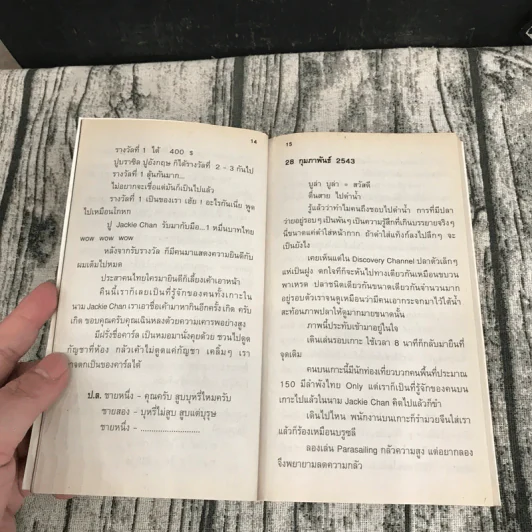 14
รางวัลที่ 1 ได้ 400 $
ปูบราซิล ปูอังกฤษ ก็ได้รางวัลที่ 2 - 3 กันไป
รางวัลที่ 1 ลุ้นกันมาก...
ไม่อยากจะเชื่อแต่มันก็เป็นไปแล้ว
รางวัลที่ 1 เป็นของเรา เฮ้ย ! อะไรกันเนี่ย พูด
ไปเหมือนโกหก
ปู Jackie Chan รับมากับมือ...1 หมื่นบาทไทย
wow wow wow
หลังจากรับรางวัล ก็มีคนมาแสดงความยินดีกับ
ผมเต็มไปหมด
ประสาคนไทยใครมายินดีก็เลี้ยงเค้าเอาหน้า
คืนนี้เราก็เลยเป็นที่รู้จักของคนทั้งเกาะใน
นาม Jackie Chan เราเอาชื่อเค้ามาหากินอีกครั้ง เกิด ครับ
เกิด ขอบคุณครับคุณเฉินหลงด้วยความเคารพอย่างสูง
มีฝรั่งชื่อคาร์ล เป็นหมอมานั่งคุยด้วย ชวนไปดูด
กัญชาที่ห้อง กลัวเค้าไม่ดูดแค่กัญชา เคลิ้มๆ เรา
จดกเป็นของคาร์ลได้
ป.ล. ชายหนึ่ง - คุณครับ สูบบุหรี่ไหมครับ
ชายสอง - บุหรี่ไม่สูบ สูบแต่บุรุษ
ชายหนึ่ง - ........................
15
28 กุมภาพันธ์ 2543
บูล่า บูล่า = สวัสดี
ตื่นสาย ไปดำน้ำ
รู้แล้วว่าทำไมคนถึงชอบไปดำน้ำ การที่มีปลา
ว่ายอยู่รอบๆ เป็นพันๆ เป็นความรู้สึกที่เกินบรรยายจริงๆ
นี่ขนาดแค่ดำใส่หน้ากาก ถ้าดำใส่แท็งก์ลงไปลึกๆ จะ
เป็นยังไง
เคยเห็นแต่ใน Discovery Channel ปลาตัวเล็กๆ
แห่เป็นฝูง ตกใจทีก็จะหันไปทางเดียวกันเหมือนขบวน
พาเหรด ปลาชนิดเดียวกันขนาดเดียวกันจำนวนมาก
อยู่รอบตัวเราจนดูเหมือนว่ามีคนเอากระจกมาไว้ใต้น้ำ
สะท้อนภาพปลาให้ดูมากมายขนาดนั้น
ภาพนี้ประทับเข้ามาอยู่ในใจ
เดินเล่นรอบเกาะ ใช้เวลา 8 นาทีก็กลับมายืนที่
จุดเดิม
คนบนเกาะนี้มีนักท่องเที่ยวบวกคนพื้นที่ประมาณ
150 มีลำพังไทย Only แต่เราก็เป็นที่รู้จักของคนบน
เกาะไปแล้วในนาม Jackie Chan คิดไปแล้วก็ขำ
เดินไปไหน พนักงานบนเกาะก็รำมวยจีนใส่เรา
แล้วก็ร้องเหมือนบรูซลี
ลองเล่น Parasailing กลัวความสูง แต่อยากลอง
จึงพยายามลดความกลัว